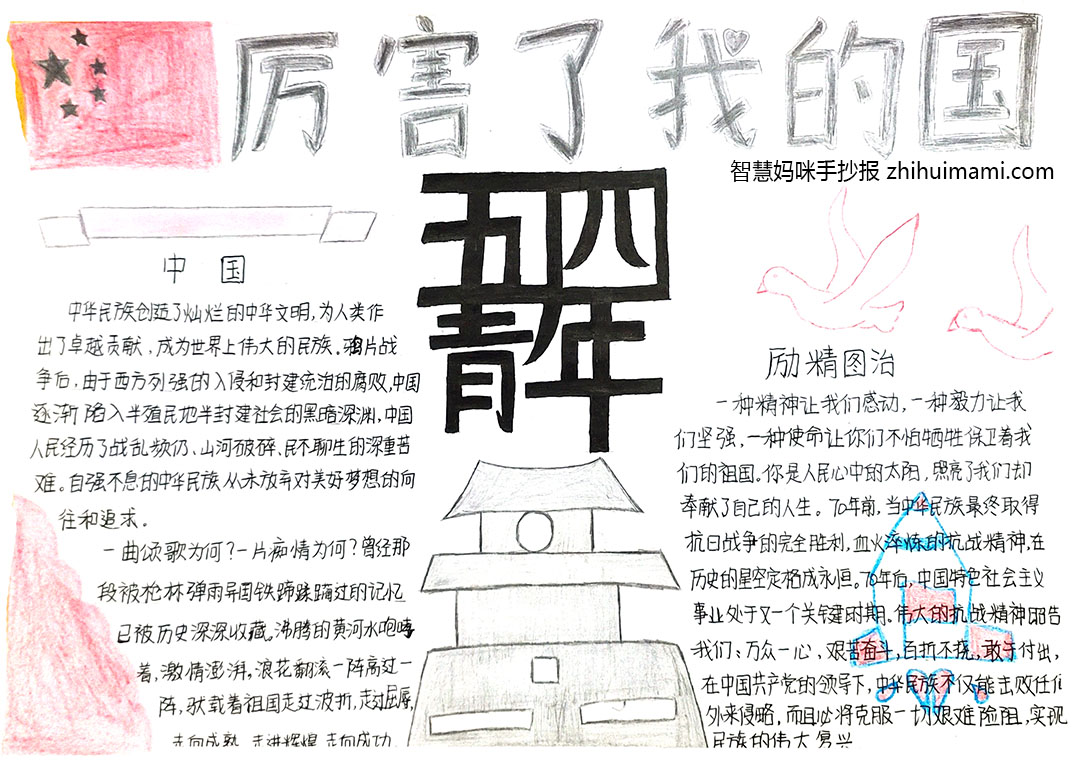 厉害了我的国
智慧妈咪手抄报 zhihuimami.com
五四
青年
中国
中华民族创造了灿烂的中华文明,为人类作
出了卓越贡献,成为世界上伟大的民族。鸦片战
争后,由于西方列强的入侵和封建统治的腐败,中国
逐渐陷入半殖民地半封建社会的黑暗深渊,中国
人民经历了战乱频仍、山河破碎、民不聊生的深重苦
难。自强不息的中华民族从未放弃对美好梦想的向
往和追求。
一曲颂歌为何?一片痴情为何?曾经那
段被枪林弹雨异国铁蹄蹂躏过的记忆
已被历史深深收藏。沸腾的黄河水咆哮
着,激情澎湃。浪花翻滚一阵高过一
阵,驮载着祖国走过波折,走过屈辱,
走向成熟,走进辉煌,走向成功.
励精图治
一种精神让我们感动,一种毅力让我
们坚强,一种使命让你们不怕牺牲保卫着我
们的祖国。你是人民心中的太阳,照亮了我们却
奉献了自己的人生。70年前,当中华民族最终取得
抗日战争的完全胜利,血火淬炼的抗战精神,在
历史的星空定格成永恒。70年后,中国特色社会主义
事业处于又一个关键时期。伟大的抗战精神昭告
我们:万众一心,艰苦奋斗,百折不挠,敢于付出,
在中国共产党的领导下,中华民族不仅能击败任何
外来侵略,而且必将克服一切艰难险阻,实现
民族的伟大复兴